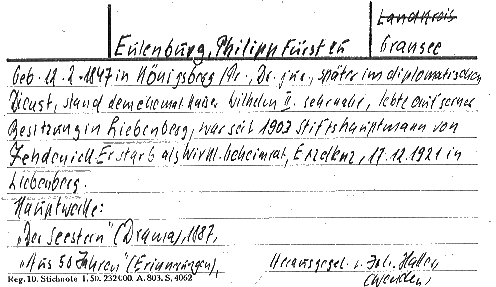 Landkreis
Eulenburg, Philipp Fürst zu Gransee
Geb. 12.2.1847 in Königsberg/Pr., Dr. jur., später im diplomatischen
Dienst, stand dem ehemal. Kaiser Wilhelm II. sehr nahe, lebte auf seiner
Besitzung in Liebenberg, war seit 1903 Stiftshauptmann von
Zehdenick. Er starb als Wirkl. Geheimrat, Exzellenz, 17.12.1921 in
Liebenberg.
Hauptwerke:
„Der Seestern" (Drama), 1887,
„Aus 50 Jahren" (Erinnerungen), Herausgegeb. v. Joh. Haller
Reg. 10. Stichnote 1. 50. 232000. A. 803. S. 4062